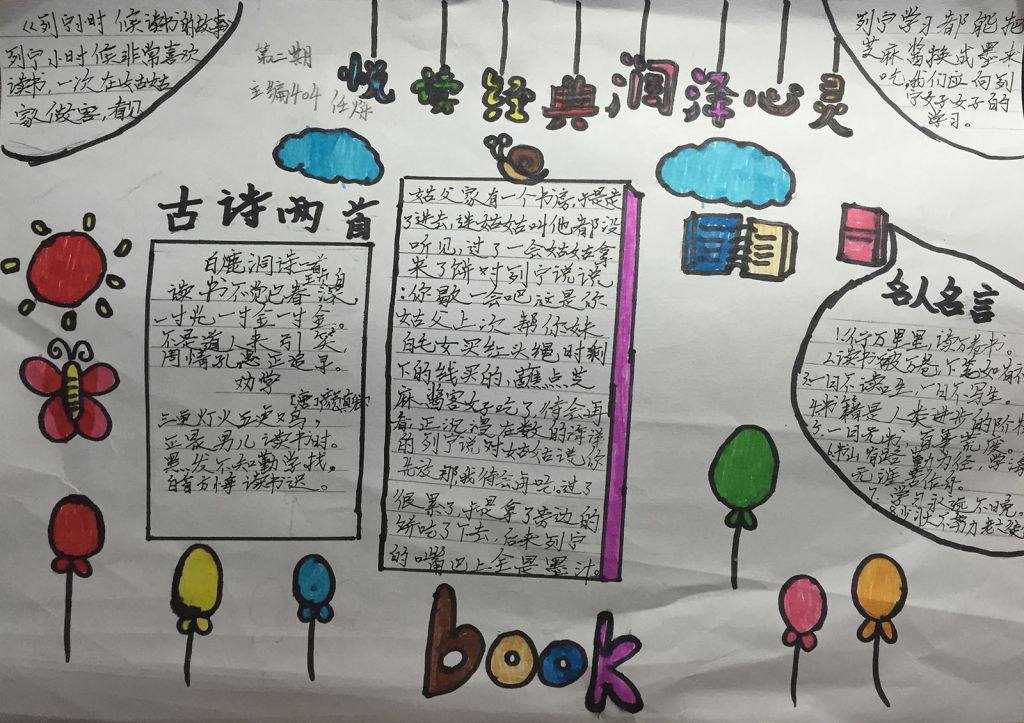 《列宁小时候读书的故事》
列宁小时候非常喜欢
读书,一次在姑姑
家做客,看见
第二期
主编404 任烁
悦读经典润泽心灵
列宁学习都能把
芝麻酱换成墨来
吃,我们应向列
宁好好的
学习。
古诗两首
白鹿洞诗二首
读书不觉已春深
一寸光一寸金一寸金。
不是道人来引笑,
周情孔思正追寻。
劝学
三更灯火五更鸡,
正是男儿读书时。
黑发不知勤学找,
白首方悔读书迟。
姑父家有一个书房,于是走
了进去,连姑姑叫他都没
听见,过了一会姑姑拿
来了饼对列宁说说
:你歇一会吧这是你
姑父上次帮你妹
白毛女买红头绳,时剩
下的线买的,蘸点芝
麻酱
的列宁说对姑姑说你
先放那我待会再吃。过了
很累了,于是拿了旁边的
饼吃了下去,后来列宁
的嘴巴上全是墨汁。
名人名言
1.行万里里,读万卷书。
2.读书破万卷,下笔如有神
3.一日不读书,一日不写生。
4.书籍是人类进步的阶梯
5.一日无书,百事荒废。
6.书山有路勤为径,学海
无涯苦作舟。
7.学习永远不晚。
8.少壮不努力老大徒
book